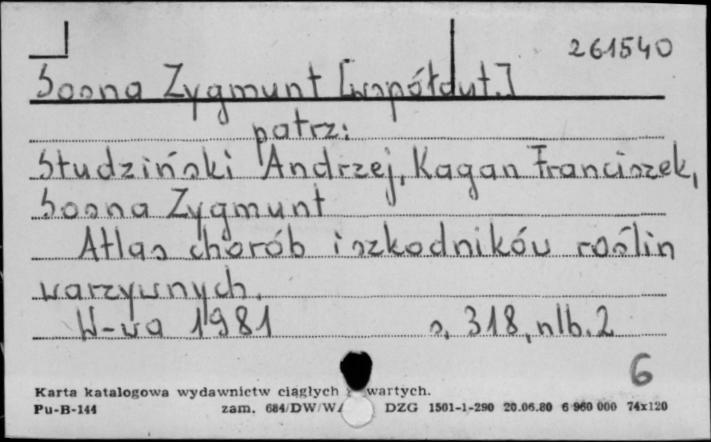 261540
Sosna Zygmunt [współaut.]
patrz:
Studziński Andrzej, Kagan Franciszek,
Sosna Zygmunt
Atlas chorób i szkodników roślin
warzywnych.
W-wa 1981 s. 318, nlb. 2
6
Karta katalogowa wydawnictw ciągłych i zwartych.
Pu-B-144 zam. 684/DW/W/ DZG 1501-1-290 20.06.80 6 960 000 74x120